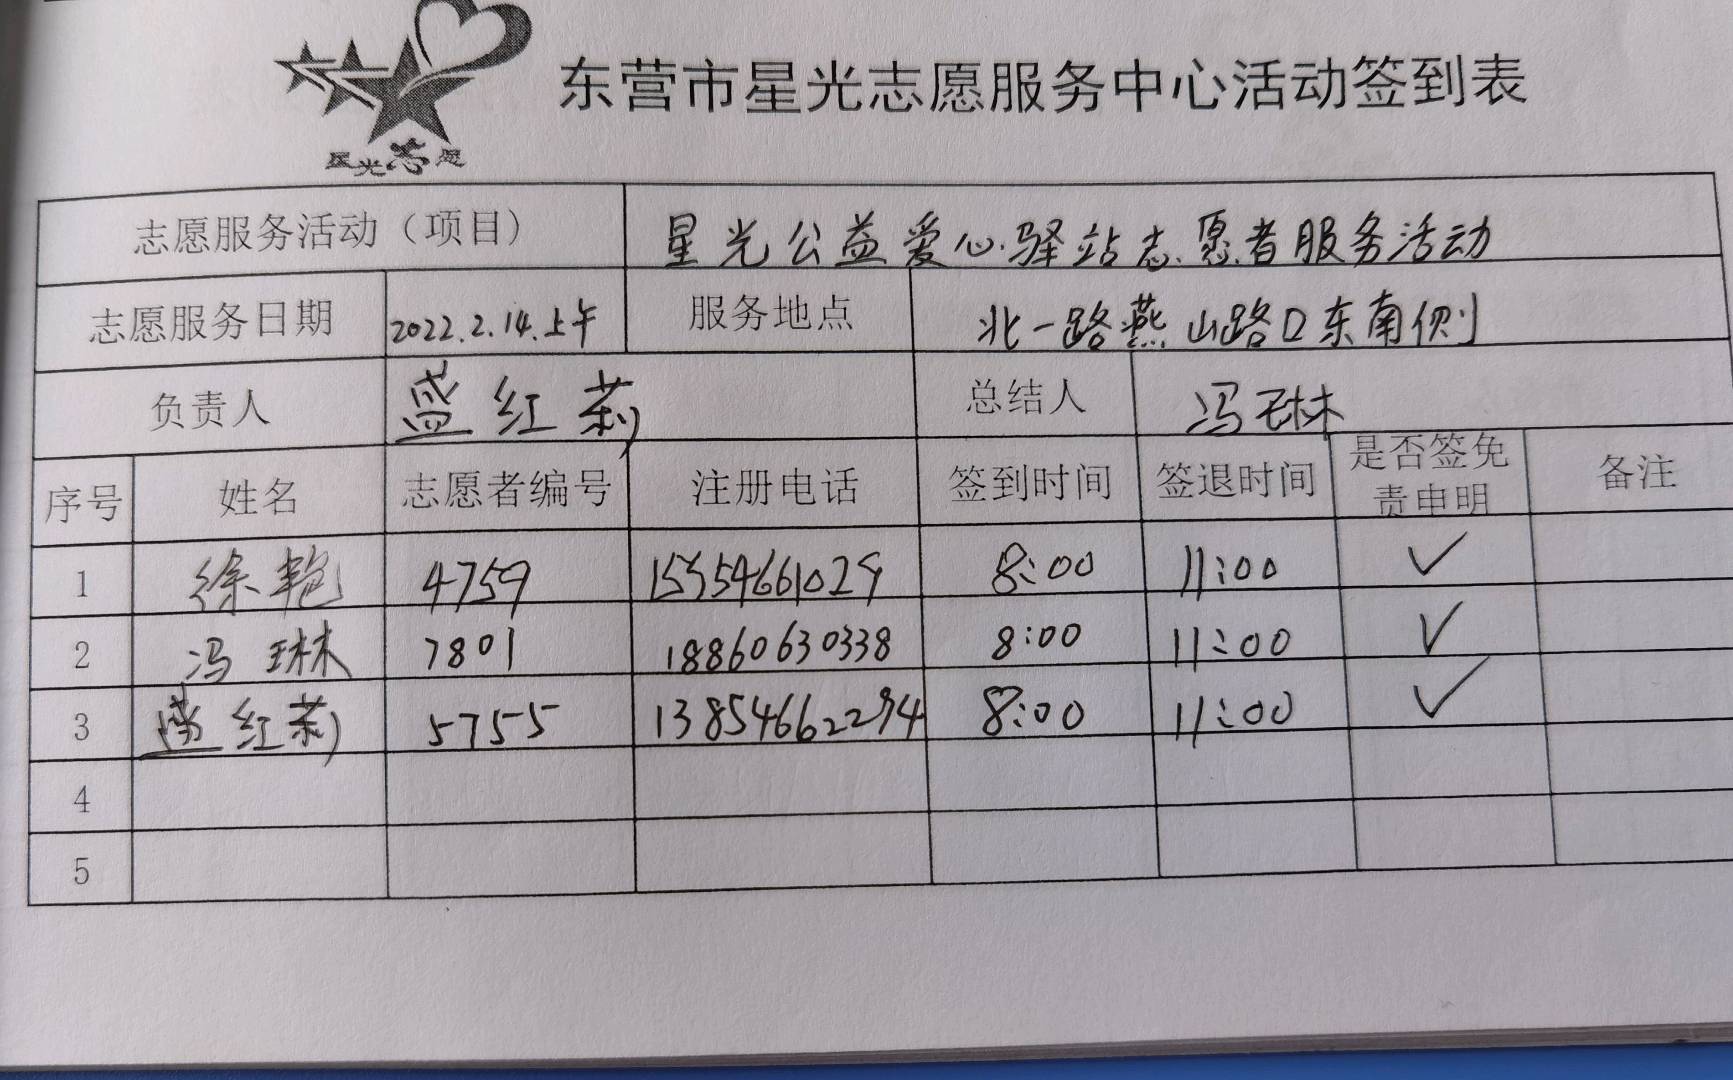 东营市星光志愿服务中心活动签到表
星光志愿
志愿服务活动（项目） 星光公益爱心驿站志愿者服务活动
志愿服务日期 2022.2.14.上午 服务地点 北一路燕山路口东南侧
负责人 盛红莉 总结人 冯琳
序号 姓名 志愿者编号 注册电话 签到时间 签退时间 是否签免责申明 备注
1 徐艳 4759 15554661029 8:00 11:00 ✓
2 冯琳 7801 18860630338 8:00 11:00 ✓
3 盛红莉 5755 13854662294 8:00 11:00 ✓
4
5